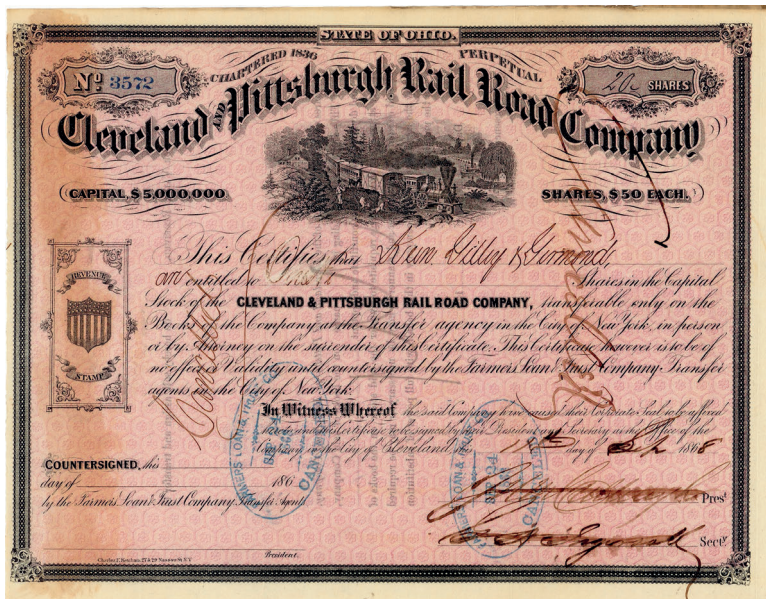 STATE OF OHIO.
CHARTERED 1836 PERPETUAL
Nº 3572
20 SHARES
Cleveland AND Pittsburgh Rail Road Company
CAPITAL, $5,000,000
SHARES, $50 EACH.
This Certifies that
are entitled to Shares in the Capital
Stock of the CLEVELAND & PITTSBURGH RAIL ROAD COMPANY, transferable only on the
Books of the Company at the Transfer agency in the City of New York, in person
or by Attorney on the surrender of this Certificate. This Certificate however is to be of
no effect or Validity until countersigned by the Farmers Loan & Trust Company, Transfer
agents in the City of New York.
REVENUE
STAMP
In Witness Whereof the said Company have caused their Corporate Seal to be affixed
hereto and this Certificate to be signed by their President and Secretary at the Office of the
Company in the City of Cleveland, this 11th day of 1868
COUNTERSIGNED, this
day of 186
by the Farmers' Loan & Trust Company, Transfer Agents
Prest
Secty
President.
FARMERS LOAN & TRUST CO.
SEP 24
CANCELLED
FARMERS LOAN &
SEP 24
CANCELLED
Cancelled